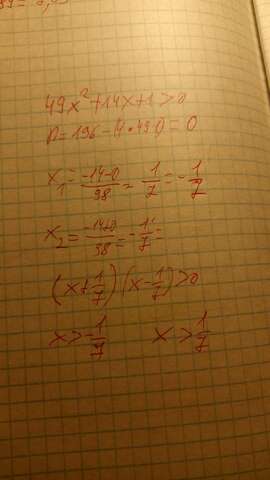 49x²+14x+1>0
D=196-(4*49*1)=0
x₁=-14-0/98=-1/7=-1/7
x₂=-14+0/98=-1/7=
(x+1/7)(x-1/7)>0
x>-1/7 x>1/7